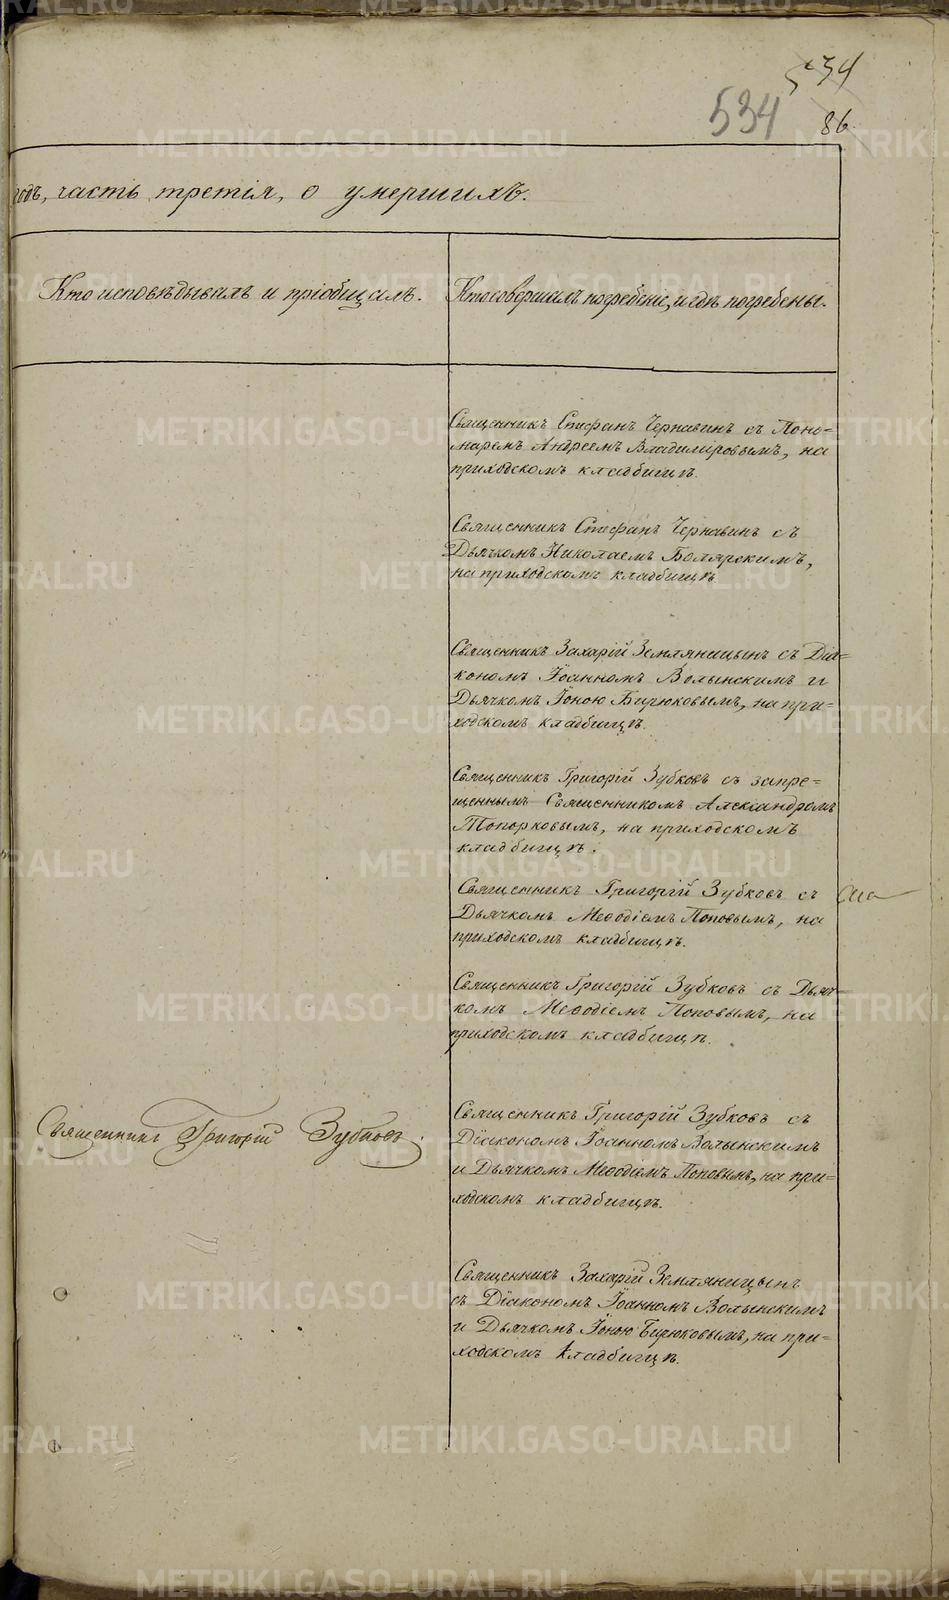 534
534
86
годъ, часть третія, о умершихъ.
Кто исповѣдывалъ и пріобщалъ.
Кто совершалъ погребеніе, и гдѣ погребены.
Священникъ Стефанъ Чернавинъ съ Поно=
маремъ Андреемъ Владиміровымъ, на
приходскомъ кладбищѣ.
Священникъ Стефанъ Чернавинъ съ
Дьячкомъ Николаемъ Болярскимъ,
на приходскомъ кладбищѣ.
Священникъ Захарій Земляницынъ съ Діа=
кономъ Іоанномъ Волынскимъ и
Дьячкомъ Іоною Бирюковымъ, на при=
ходскомъ кладбищѣ.
Священникъ Григорій Зубковъ съ запре=
щеннымъ Священникомъ Александромъ
Топорковымъ, на приходскомъ
кладбищѣ.
Священникъ Григорій Зубковъ съ
Дьячкомъ Меѳодіемъ Поповымъ, на
приходскомъ кладбищѣ.
Священникъ Григорій Зубковъ съ Дьяч=
комъ Меѳодіемъ Поповымъ, на
приходскомъ кладбищѣ.
Священникъ Григорій Зубковъ.
Священникъ Григорій Зубковъ съ
Діакономъ Іоанномъ Волынскимъ
и Дьячкомъ Меѳодіемъ Поповымъ, на при=
ходскомъ кладбищѣ.
Священникъ Захарій Земляницынъ
съ Діакономъ Іоанномъ Волынскимъ
и Дьячкомъ Іоною Бирюковымъ, на при=
ходскомъ кладбищѣ.
METRIKI.GASO-URAL.RU